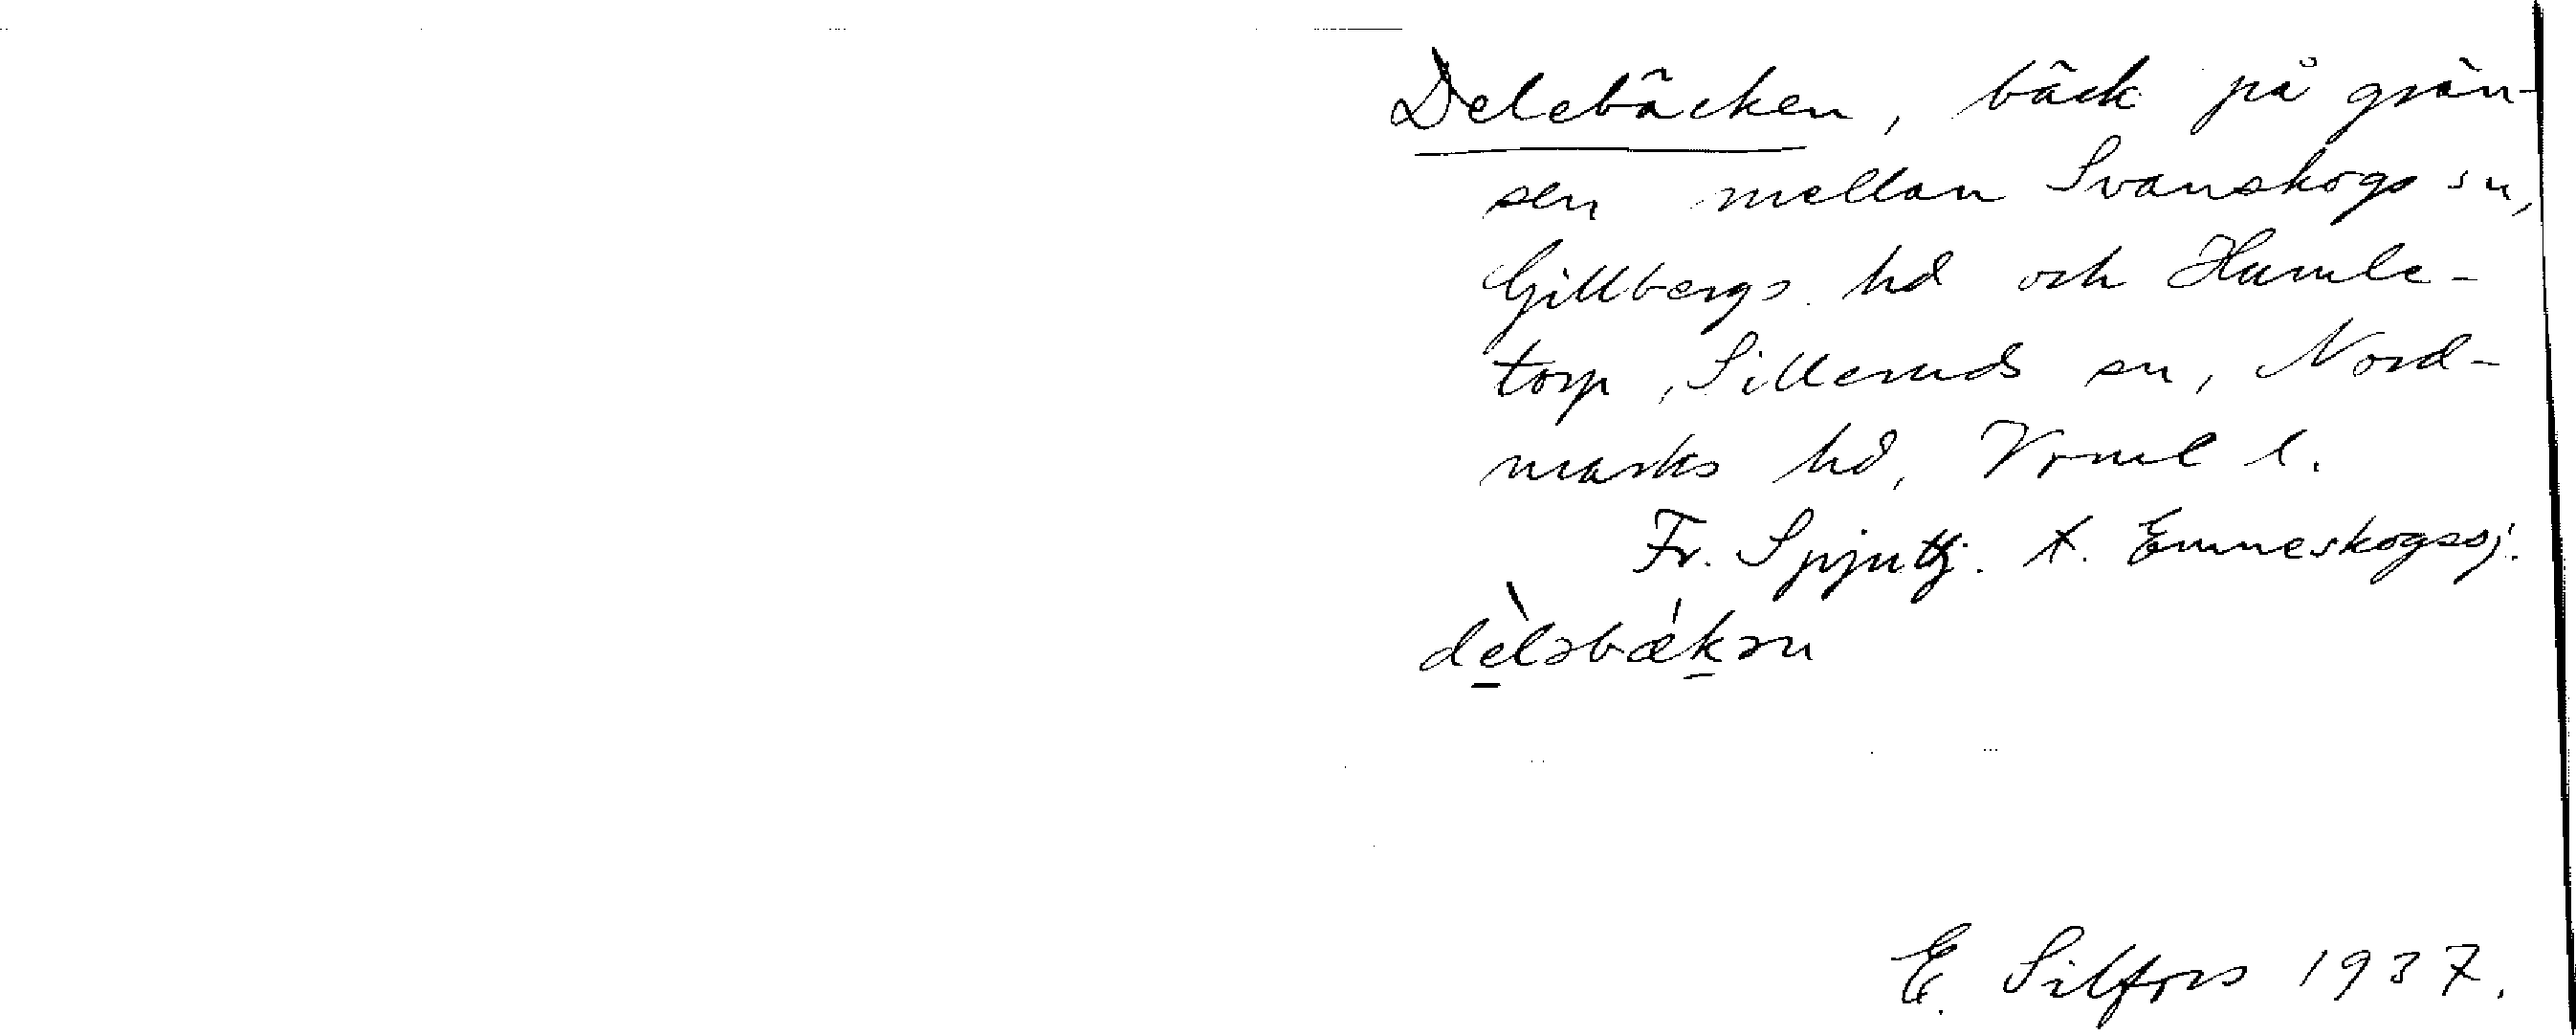 Delebäcken, bäck på grän-
sen mellan Svanskogs sn,
Gillbergs hd och Humle-
torp, Silleruds sn, Nord-
marks hd, Vrml l.
Fr. Spjuttj. t. Emneskogssj.
dèləbǽkən
E. Silfors 1937.